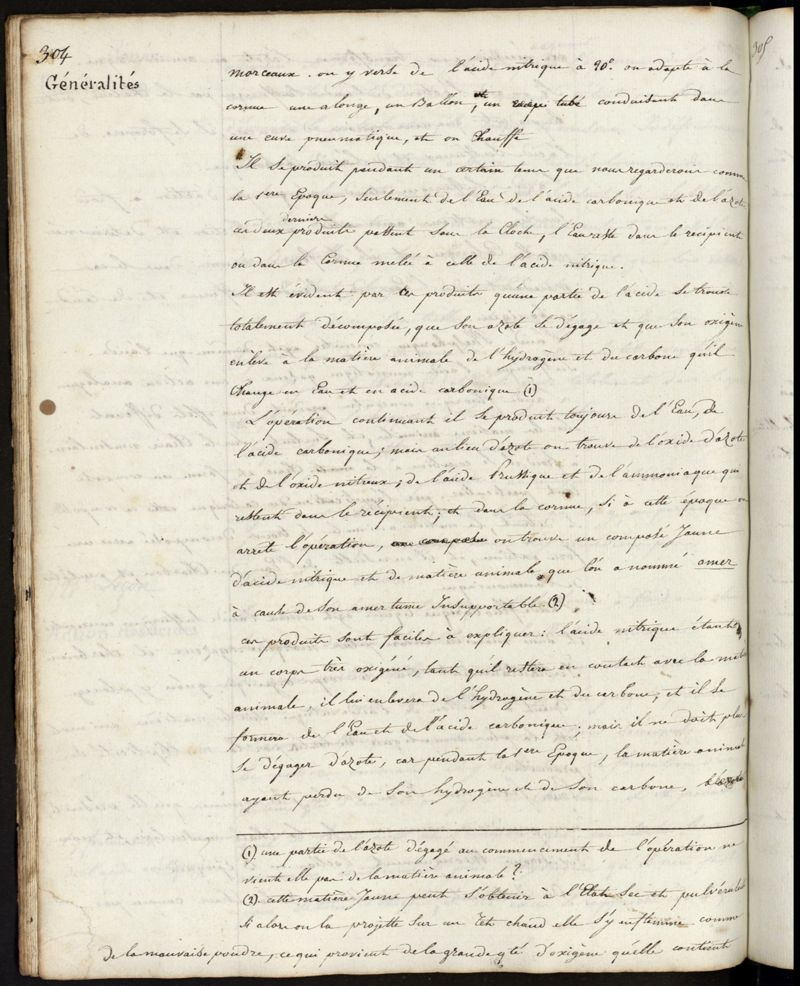 304
Généralités
morceaux. on y verse de l'acide nitrique à 90°. on adapte à la
cornue une alonge, un Ballon, et un tube conduisant dans
une cuve pneumatique, et on chauffe
Il se produit pendant un certain tems que nous regarderons comme
la 1ere Epoque, seulement de l'Eau de l'acide carbonique et de l'azote
ces deux derniers produits passent sous la Cloche, l'Eau reste dans le recipient
ou dans la Cornue melée à celle de l'acide nitrique.
Il est évident par ces produits qu'une partie de l'acide se trouve
totalement décomposée, que son azote se dégage et que son oxigène
enlève à la matière animale de l'hydrogène et du carbone qu'il
Change en Eau et en acide carbonique (1)
L'opération continuant il se produit toujours de l'Eau, de
l'acide carbonique; mais au lieu d'azote on trouve de l'oxide d'azote
et de l'oxide nitreux; de l'acide Prussique et de l'ammoniaque qui
restent dans le récipient; et dans la cornue, si à cette époque on
arrete l'opération, on trouve un composé Jaune
d'acide nitrique et de matière animale que l'on a nommé amer
à cause de son amertume Insupportable. (2)
ces produits sont faciles à expliquer: l'acide nitrique étant
un corps très oxigéné, tant qu'il restera en contact avec la mat
animale, il lui enlevera de l'hydrogène et du carbone, et il se
formera de l'Eau et de l'acide carbonique; mais il ne doit plus
se dégager d'azote, car pendant la 1ere Epoque, la matière animal
ayant perdu de son hydrogène et de son carbone,
(1) une partie de l'azote dégagé au commencement de l'opération ne
vient elle pas de la matière animale?
(2) cette matière Jaune peut s'obtenir à l'Etat sec et pulvérulent
Si alors on la projette sur un Têt chaud elle s'y enflamme comme
de la mauvaise poudre, ce qui provient de la grande qté d'oxigène qu'elle contient
305